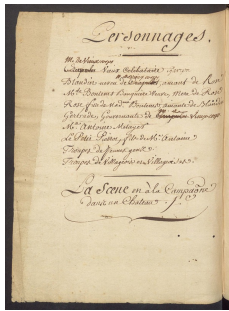 Personnages.
M. de Vieuxcamp
Vieux Celibataire
Blandin neveu de amant de Ros
Mde. Bontems Veuve, Mere de Ros
Rose fille de Made. Bontems amante de Bland
Gertrude, Gouvernante de
Mr. Antoine Metayer
Le Petit Pierrot, fils de Mr. Antoine
Troupe de Jeunes gens
Troupe de Villageois et Villageoises
La Scene est à la Campagne
dans un Chateau